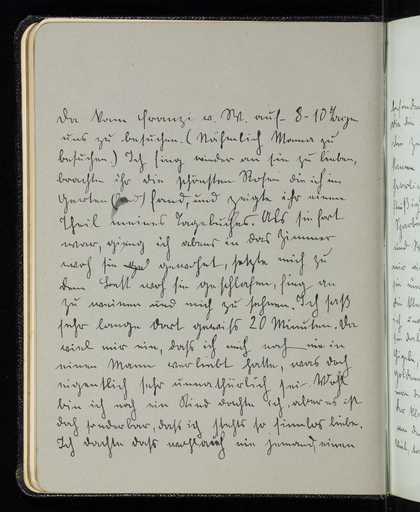 Da kam Franzi v. W. auf 8-10 Tage
uns zu besuchen. (Nähmlich Mama zu
besuchen.) Ich fing wieder an sie zu lieben,
brachte ihr die schönsten Rosen die ich im
Garten fand, und zeigte ihr einen
Theil meines Tagebuches. Als sie fort
war, gieng ich abens in das Zimmer
woh sie gewohnt, setzte mich zu
dem Bett woh sie geschlafen, fing an
zu weinen und mich zu sehnen. Ich saß
sehr lange dort gewiß 20 Minuten. Da
viel mir ein, dass ich mich noch nie in
einen Mann verliebt hatte, was doch
eigentlich sehr unnathürlich sei. Wohl
bin ich noch ein Kind dachte ich, aber es ist
doch sonderbar, dass ich stehts so sinnlos liebe.
Ich dachte dass wohl auch nie jemand, einen